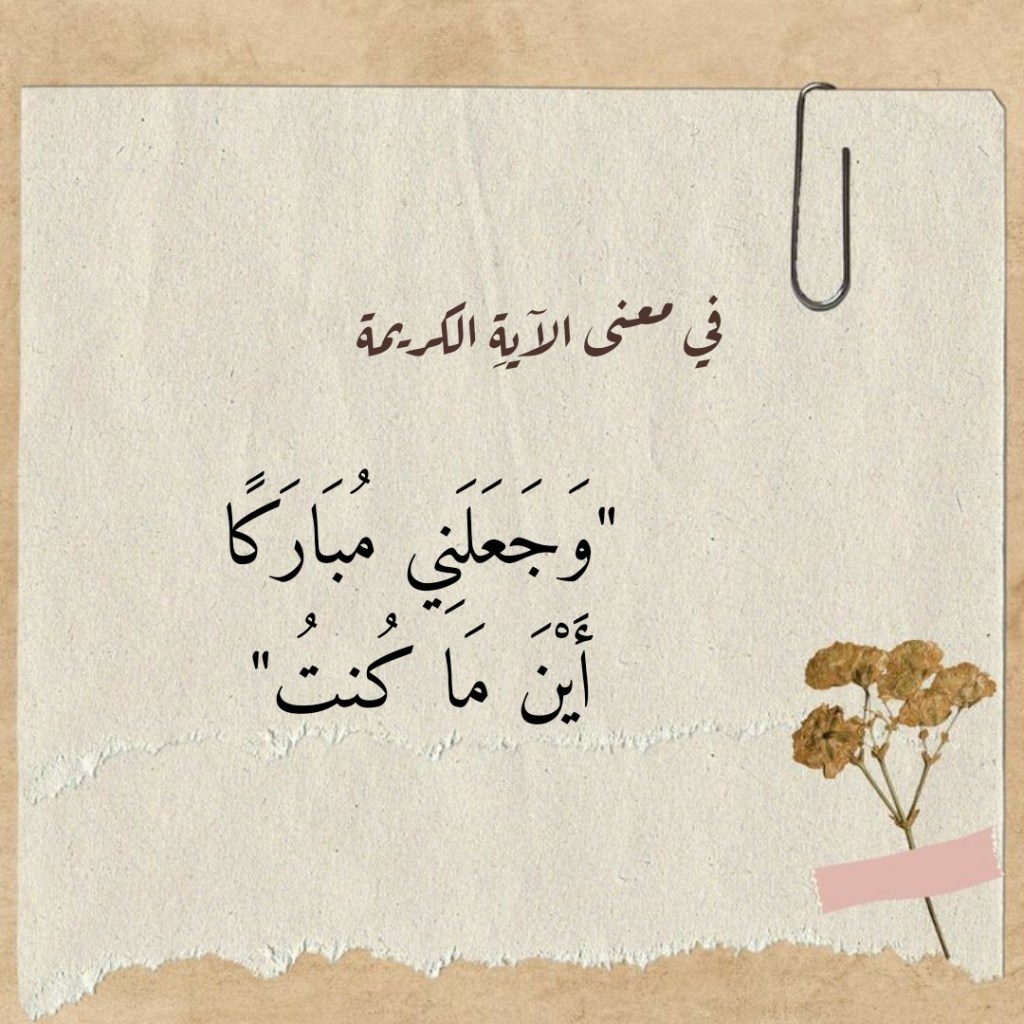 في معنى الآيةِ الكريمة
"وَجَعَلَنِي مُبَارَكًا
أَيْنَ مَا كُنتُ"